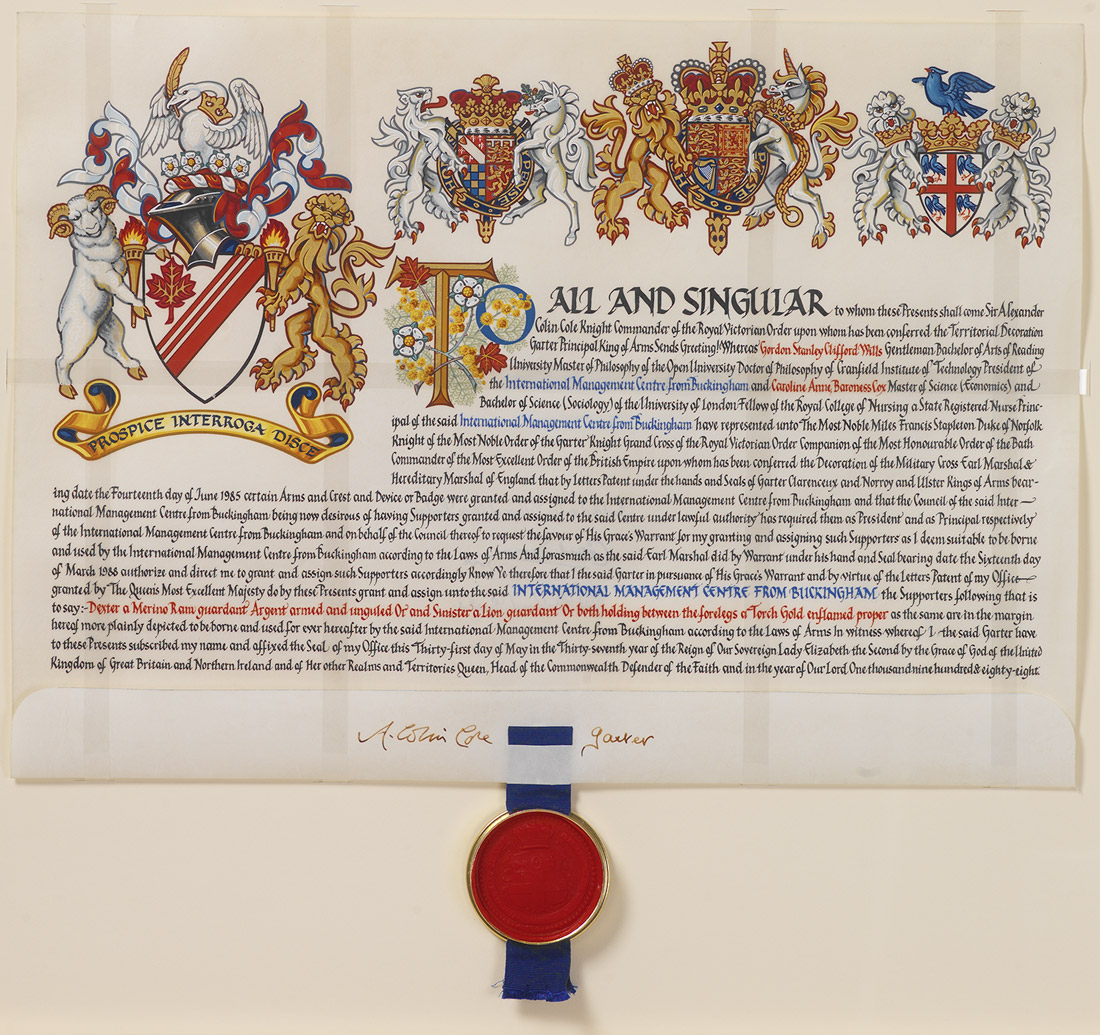 PROSPICE INTERROGA DISCE
TO ALL AND SINGULAR to whom these Presents shall come Sir Alexander
Colin Cole Knight Commander of the Royal Victorian Order upon whom has been conferred the Territorial Decoration
Garter Principal King of Arms Sends Greeting! Whereas Gordon Stanley Clifford Wills Gentleman Bachelor of Arts of Reading
University Master of Philosophy of the Open University Doctor of Philosophy of Cranfield Institute of Technology President of
the International Management Centre from Buckingham and Caroline Anne Baroness Cox Master of Science (Economics) and
Bachelor of Science (Sociology) of the University of London Fellow of the Royal College of Nursing a State Registered Nurse Princ-
ipal of the said International Management Centre from Buckingham have represented unto The Most Noble Miles Francis Stapleton Duke of Norfolk
Knight of the Most Noble Order of the Garter Knight Grand Cross of the Royal Victorian Order Companion of the Most Honourable Order of the Bath
Commander of the Most Excellent Order of the British Empire upon whom has been conferred the Decoration of the Military Cross Earl Marshal &
Hereditary Marshal of England that by Letters Patent under the hands and Seals of Garter Clarenceux and Norroy and Ulster Kings of Arms bear-
ing date the Fourteenth day of June 1985 certain Arms and Crest and Device or Badge were granted and assigned to the International Management Centre from Buckingham and that the Council of the said Inter-
national Management Centre from Buckingham being now desirous of having Supporters granted and assigned to the said Centre under lawful authority has required them as President and as Principal respectively
of the International Management Centre from Buckingham and on behalf of the Council thereof to request the favour of His Grace's Warrant for my granting and assigning such Supporters as I deem suitable to be borne
and used by the International Management Centre from Buckingham according to the Laws of Arms And forasmuch as the said Earl Marshal did by Warrant under his hand and Seal bearing date the Sixteenth day
of March 1988 authorize and direct me to grant and assign such Supporters accordingly Know Ye therefore that I the said Garter in pursuance of His Grace's Warrant and by virtue of the Letters Patent of my Office
granted by The Queen's Most Excellent Majesty do by these Presents grant and assign unto the said INTERNATIONAL MANAGEMENT CENTRE FROM BUCKINGHAM the Supporters following that is
to say:- Dexter a Merino Ram guardant Argent armed and unguled Or and Sinister a Lion guardant Or both holding between the forelegs a Torch Gold enflamed proper as the same are in the margin
hereof more plainly depicted to be borne and used for ever hereafter by the said International Management Centre from Buckingham according to the Laws of Arms In witness whereof I the said Garter have
to these Presents subscribed my name and affixed the Seal of my Office this Thirty-first day of May in the Thirty-seventh year of the Reign of Our Sovereign Lady Elizabeth the Second by the Grace of God of the United
Kingdom of Great Britain and Northern Ireland and of Her other Realms and Territories Queen, Head of the Commonwealth Defender of the Faith and in the year of Our Lord One thousand nine hundred & eighty-eight.
A. Colin Cole Garter